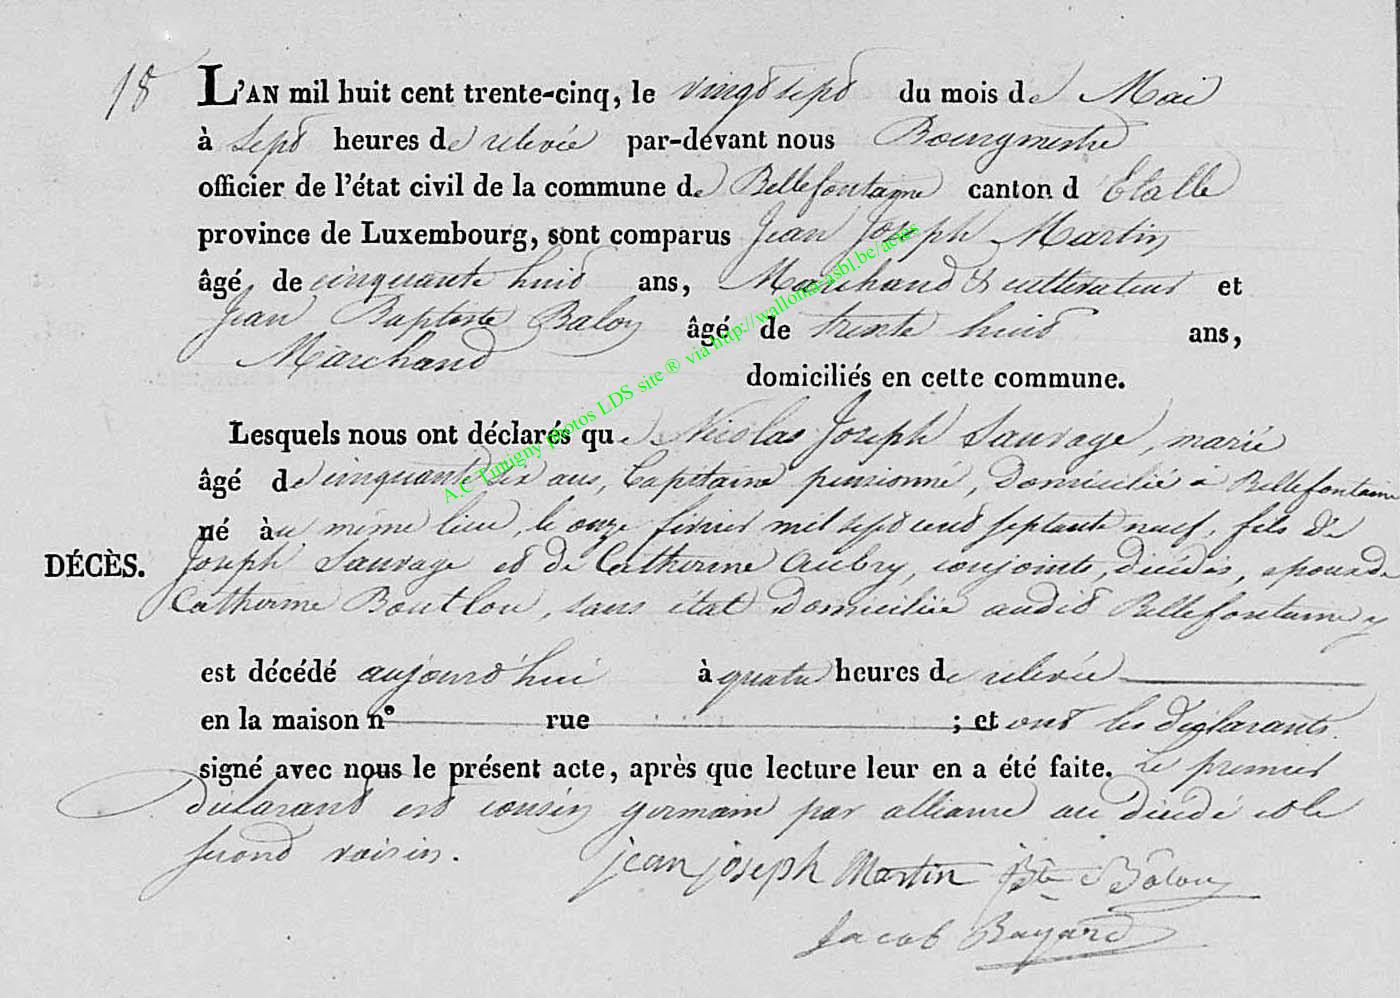 18
L'AN mil huit cent trente-cinq, le vingt sept du mois de Mai
à sept heures de relevée par-devant nous Bourgmestre
officier de l'état civil de la commune de Bellefontaine canton d Etalle
province de Luxembourg, sont comparus Jean Joseph Martin
âgé de cinquante huit ans, Marchand & cultivateur et
Jean Baptiste Balon âgé de trente huit ans,
Marchand domiciliés en cette commune.
Lesquels nous ont déclarés que Nicolas Joseph Sauvage, marié
âgé de cinquante six ans, Capitaine pensionné, domicilié à Bellefontaine
né àu même lieu, le onze février mil sept cent septante neuf, fils de
DÉCÈS. Joseph Sauvage et de Catherine Aubry, conjoints, décédés, époux de
Catherine, sans état domiciliée audit Bellefontaine
est décédé aujourd'hui à quatre heures de relevée
en la maison n° rue ; et ont les déclarants
signé avec nous le présent acte, après que lecture leur en a été faite. Le premier
déclarant est cousin germain par alliance au décédé et le
second voisin. jean joseph Martin Bte Balon
Jacob Bayard
A.C Tintigny photos LDS site ® via http://wallonia-asbl.be/actes